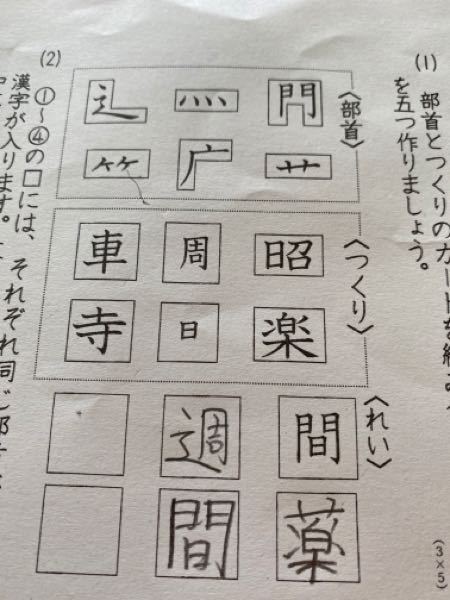 (1) 部首とつくりのカードを
を五つ作りましょう。
(3×5)
〈部首〉
門 灬 辶
艹 广 ⺮
〈つくり〉
昭 周 車
楽 日 寺
〈れい〉
間 週
薬 間
(2) ①〜④の□には、それぞれ同じ
漢字が入ります。